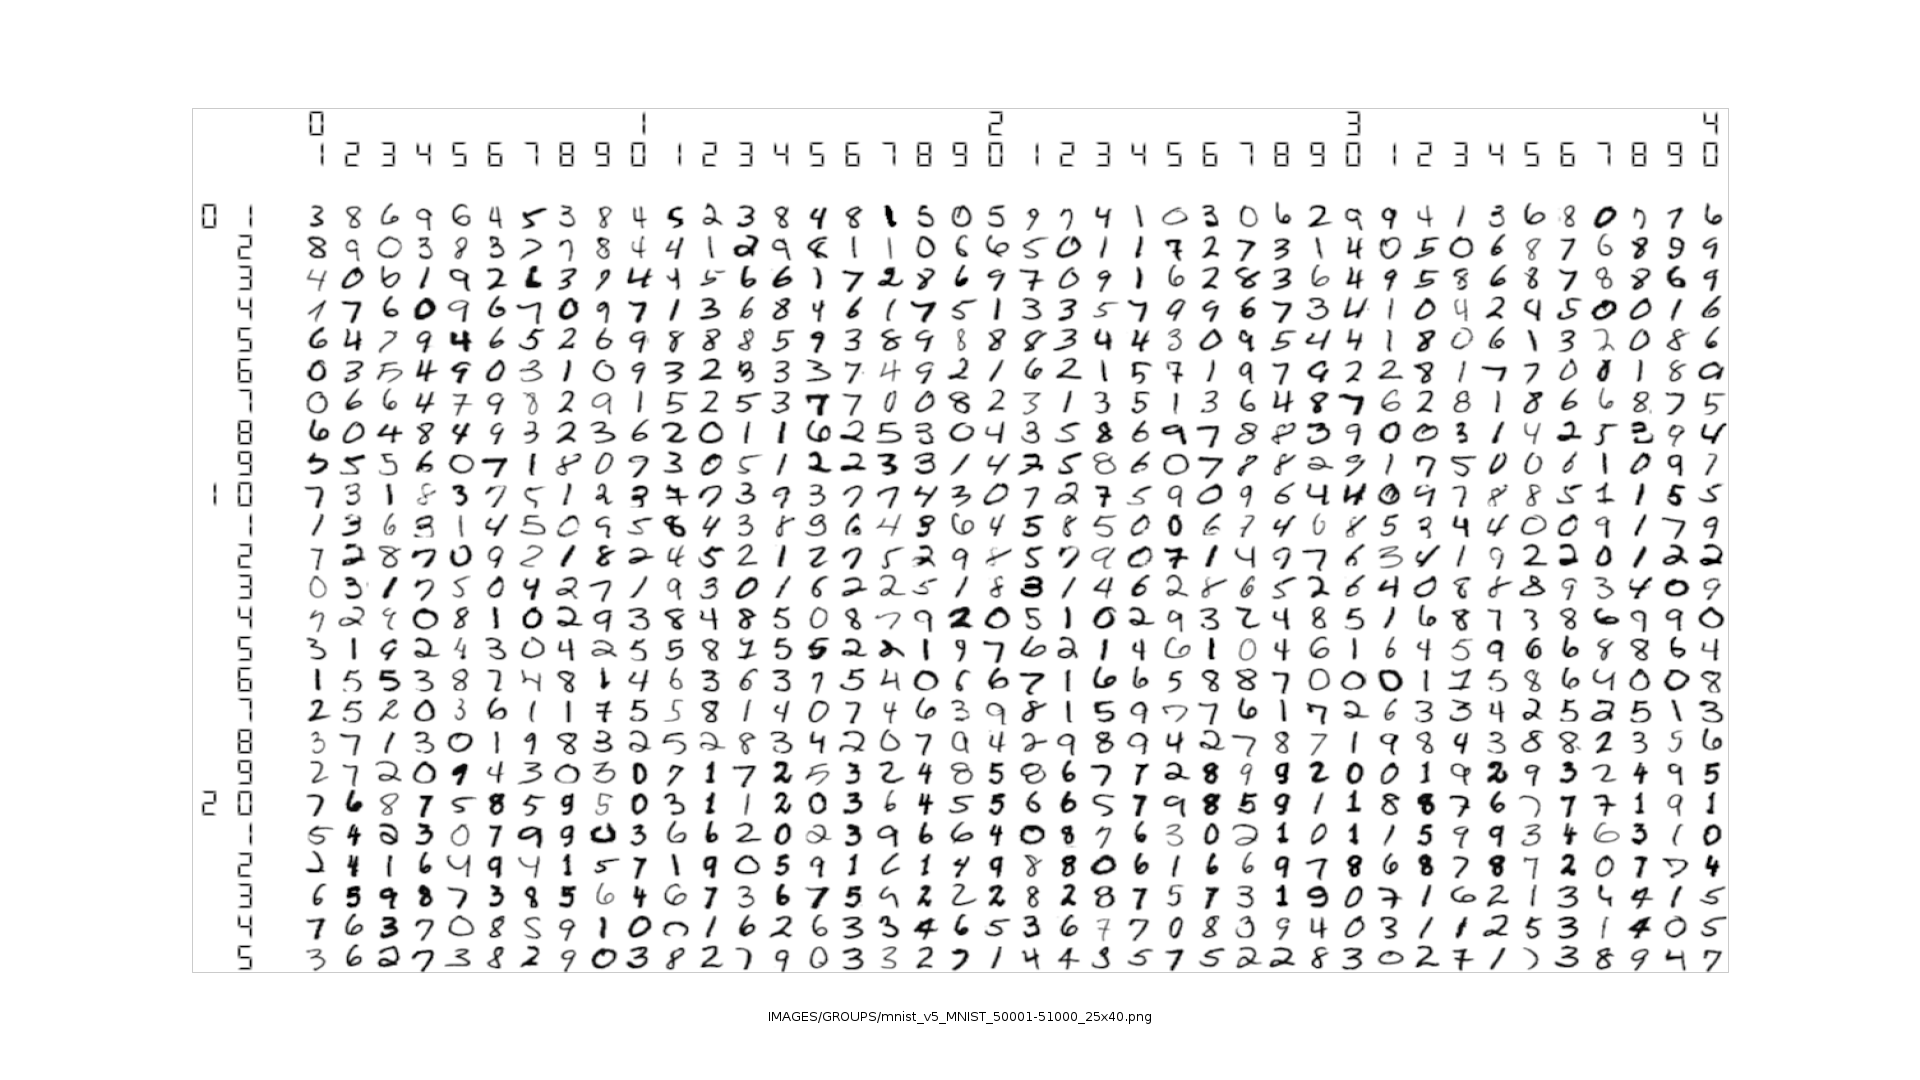 0 1 2 3 4
1 2 3 4 5 6 7 8 9 0 1 2 3 4 5 6 7 8 9 0 1 2 3 4 5 6 7 8 9 0 1 2 3 4 5 6 7 8 9 0
0 1 3 8 6 9 6 4 5 3 8 4 5 2 3 8 4 8 1 5 0 5 9 7 4 1 0 3 0 6 2 9 9 4 1 3 6 8 0 7 7 6
2 8 9 0 3 8 3 7 7 8 4 4 1 2 9 8 1 1 0 6 6 5 0 1 1 7 2 7 3 1 4 0 5 0 6 8 7 6 8 9 9
3 4 0 6 1 9 2 6 3 9 4 4 5 6 6 1 7 2 8 6 9 7 0 9 1 6 2 8 3 6 4 9 5 8 6 8 7 8 8 6 9
4 1 7 6 0 9 6 7 0 9 7 1 3 6 8 4 6 1 7 5 1 3 3 5 7 9 9 6 7 3 4 1 0 4 2 4 5 0 0 1 6
5 6 4 7 9 4 6 5 2 6 9 8 8 8 5 9 3 8 9 8 8 8 3 4 4 3 0 9 5 4 4 1 8 0 6 1 3 2 0 8 6
6 0 3 5 4 9 0 3 1 0 9 3 2 3 3 3 7 4 9 2 1 6 2 1 5 7 1 9 7 9 2 2 8 1 7 7 0 8 1 8 9
7 0 6 6 4 7 9 8 2 9 1 5 2 5 3 7 7 0 0 8 2 3 1 3 5 1 3 6 4 8 7 6 2 8 1 8 6 6 8 7 5
8 6 0 4 8 4 9 3 2 3 6 2 0 1 1 6 2 5 3 0 4 3 5 8 6 9 7 8 8 3 9 0 0 3 1 4 2 5 3 9 4
9 5 5 5 6 0 7 1 8 0 9 3 0 5 1 2 2 3 3 1 4 2 5 8 6 0 7 8 8 2 9 1 7 5 0 0 6 1 0 9 7
1 0 7 3 1 8 3 7 5 1 2 3 7 7 3 9 3 7 7 4 3 0 7 2 7 5 9 0 9 6 4 4 0 9 7 8 8 5 1 1 5 5
1 1 3 6 3 1 4 5 0 9 5 8 4 3 8 9 6 4 9 6 4 5 8 5 0 0 6 7 4 0 8 5 3 4 4 0 0 9 1 7 9
2 7 2 8 7 0 9 2 1 8 2 4 5 2 1 2 7 5 2 9 8 5 7 9 0 7 1 4 9 7 6 3 4 1 9 2 2 0 1 2 2
3 0 3 1 7 5 0 4 2 7 1 9 3 0 1 6 2 2 5 1 8 3 1 4 6 2 8 6 5 2 6 4 0 8 8 8 9 3 4 0 9
4 7 2 9 0 8 1 0 2 9 3 8 4 8 5 0 8 7 9 2 0 5 1 0 2 9 3 2 4 8 5 1 6 8 7 3 8 6 9 9 0
5 3 1 9 2 4 3 0 4 2 5 5 8 1 5 5 2 2 1 9 7 6 2 1 4 6 1 0 4 6 1 6 4 5 9 6 6 8 8 6 4
6 1 5 5 3 8 7 4 8 1 4 6 3 6 3 7 5 4 0 6 6 7 1 6 6 5 8 8 7 0 0 0 1 1 5 8 6 4 0 0 8
7 2 5 2 0 3 6 1 1 7 5 5 8 1 4 0 7 4 6 3 9 8 1 5 9 7 7 6 1 7 2 6 3 3 4 2 5 2 5 1 3
8 3 7 1 3 0 1 9 8 3 2 5 2 8 3 4 2 0 7 9 4 2 9 8 9 4 2 7 8 7 1 9 8 4 3 8 8 2 3 5 6
9 2 7 2 0 9 4 3 0 3 0 7 1 7 2 5 3 2 4 8 5 8 6 7 7 2 8 9 9 2 0 0 1 9 2 9 3 2 4 9 5
2 0 7 6 8 7 5 8 5 9 5 0 3 1 1 2 0 3 6 4 5 5 6 6 5 7 9 8 5 9 1 1 8 8 7 6 7 7 7 1 9 1
1 5 4 2 3 0 7 9 9 0 3 6 6 2 0 2 3 9 6 6 4 0 8 7 6 3 0 2 1 0 1 1 5 9 9 3 4 6 3 1 0
2 2 4 1 6 4 9 4 1 5 7 1 9 0 5 9 1 6 1 4 9 8 8 0 6 1 6 6 9 7 8 6 8 7 8 7 2 0 7 7 4
3 6 5 9 8 7 3 8 5 6 4 6 7 3 6 7 5 9 2 2 2 8 2 8 7 5 7 3 1 9 0 7 1 6 2 1 3 4 4 1 5
4 7 6 3 7 0 8 5 9 1 0 0 1 6 2 6 3 3 4 6 5 3 6 7 7 0 8 3 9 4 0 3 1 1 2 5 3 1 4 0 5
5 3 6 2 7 3 8 2 9 0 3 8 2 7 9 0 3 3 2 7 1 4 4 3 5 7 5 2 2 8 3 0 2 7 1 7 3 8 9 4 7
IMAGES/GROUPS/mnist_v5_MNIST_50001-51000_25x40.png